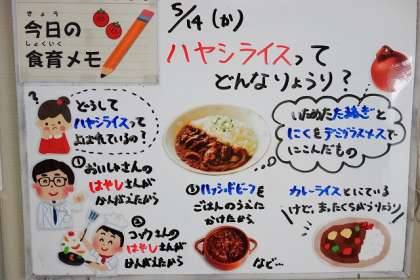 きょう
今日の
しょくいく
食育メモ
5/14(か)
ハヤシライスって
どんなりょうり？
どうして
ハヤシライスって
よばれているの？
いためたたまねぎと
にくをデミグラスソースで
にこんだもの
① おいしゃさんの
はやしさんが
かんがえたから
② コックさんの
はやしさんが
かんがえたから
③ ハッシュドビーフを
ごはんのうえに
かけたから
など…
カレーライスとにている
けど、まったくちがうりょうり